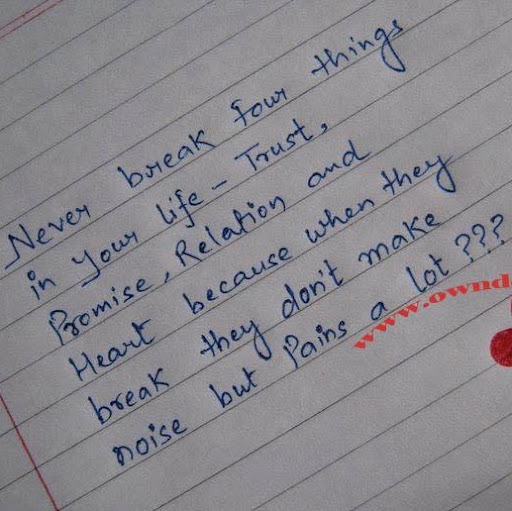 Never break four things
in your life - Trust,
Promise, Relation and
Heart because when they
break they don't make
noise but Pains a lot ???
www.ownd